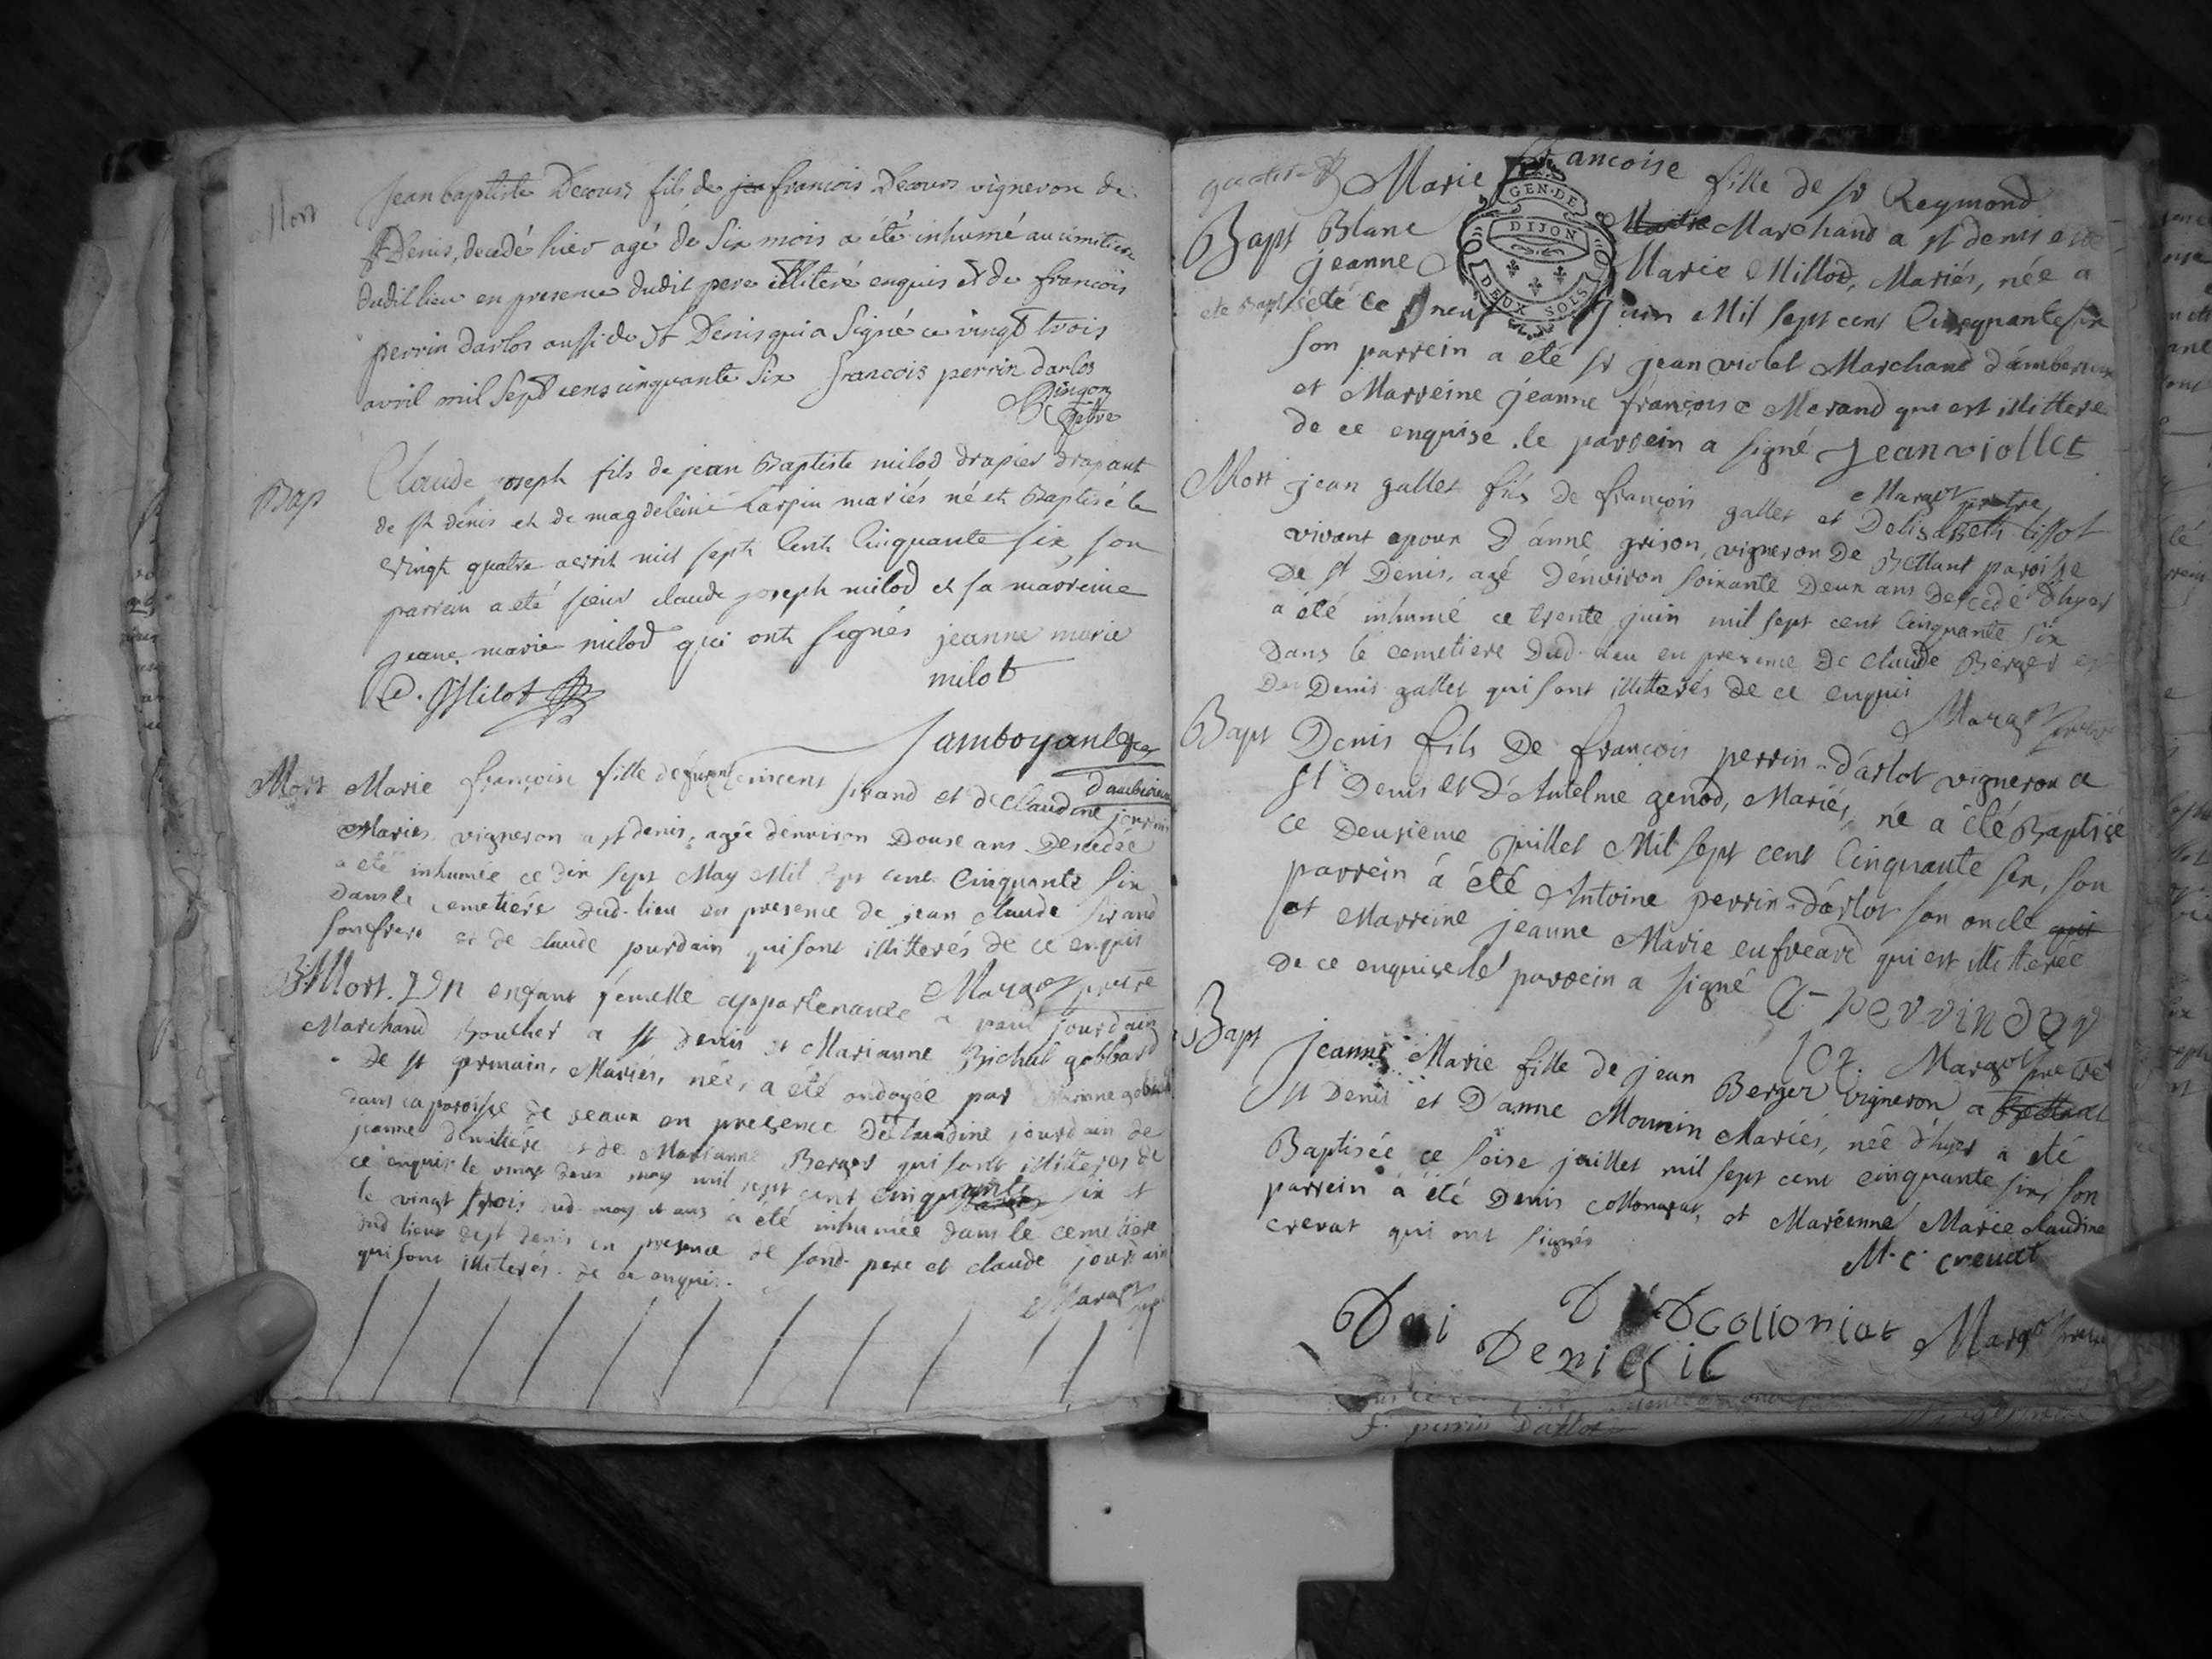 Mort
Jean baptiste Decours fils de francois Decours vigneron de
St Denis, decedé hier agé de Six mois a été inhumé au cimitiere
dudit lieu en presence dudit pere illiteré enquis et de francois
perrin darlos aussi de St Denis qui a Signé ce vingt trois
avril mil Sept cens cinquante Six francois perrin darlos
Bap
Claude joseph fils de jean Baptiste milod drapier drapant
de st denis et de magdeleine Carpin mariés né et Baptisé le
vingt quatre avril mil sept Cent Cinquante six, son
parrein a eté sieur claude joseph milod et sa marreine
jeane marie milod qui ont signés jeanne marie
milot
C. J Milot
Mort Marie françoise fille de vincent sirand et de Claudine
Mariés vigneron a st denis, agée d'environ Douse ans Decedée
a eté inhumée ce dix sept May Mil sept cent Cinquante Six
Dans le cemetiére dud. lieu en presence de jean claude sirand
son frere et de claude jourdain qui sont illitterés de ce enquis
Margot pretre
Mort. Un enfant femelle appartenante a paul jourdain
Marchand Boucher a st Denis et Marianne Bichul gobbard
De st germain, Mariés, née, a été ondoyée par
dans sa paroisse de en presence De Claudine jourdain de
et de Marianne Berger qui sont illitterés de
ce enquis le vingt deux may mil sept cent cinquante six et
le vingt trois dud. may et ans a été inhumée dans le cemetiere
dud lieux de st denis en presence de sond. pere et claude jourdain
qui sont illiterés de ce enquis.
Margot
Marie francoise fille de sr Reymond
Bapt Blanc Marchand a st denis et de
jeanne Marie Millod, Mariés, née a
été ce neuf juin Mil sept cent Cinquante six
son parrein a eté sr jean violet Marchand d'amberieux
et Marreine jeanne françoise Morand qui est illitterée
de ce enquise. le parrein a signé Jean viollet
Margot pretre
Mort jean gallet fils de françois gallet et D'elisabeth tissot
vivant epoux D'anne grison, vigneron De Bettant paroisse
De st Denis, agé d'environ soixante Deux ans Decedé d'hyer
a été inhumé ce trente juin mil sept cent Cinquante Six
Dans le cemetiere Dud. lieu en presence De claude Berger et
De Denis gallet qui sont illitterés de ce enquis
Margot pretre
Bapt Denis fils De françois perrin-d'arlot vigneron a
st Denis et D'Antelme genod, Mariés, né a été Baptisé
ce Deusieme juillet Mil sept cent Cinquante six, son
parrein à été Antoine perrin-d'arlot son oncle
et Marreine jeanne Marie qui est illitterée
De ce enquise le parrein a signé A-perrindar
lot. Margot pretre
Bapt jeanne Marie fille de jean Berger vigneron a
St Denis et D'anne Monnin Mariés, née d'hyer a été
Baptisée ce seise juillet mil sept cent cinquante six, son
parrein à été Denis collomat, et Maréenne Marie claudine
crevat qui ont signés
M. C. crevat
D Dcolloniat Margot pretre
GEN. DE
DIJON
DEUX SOLS